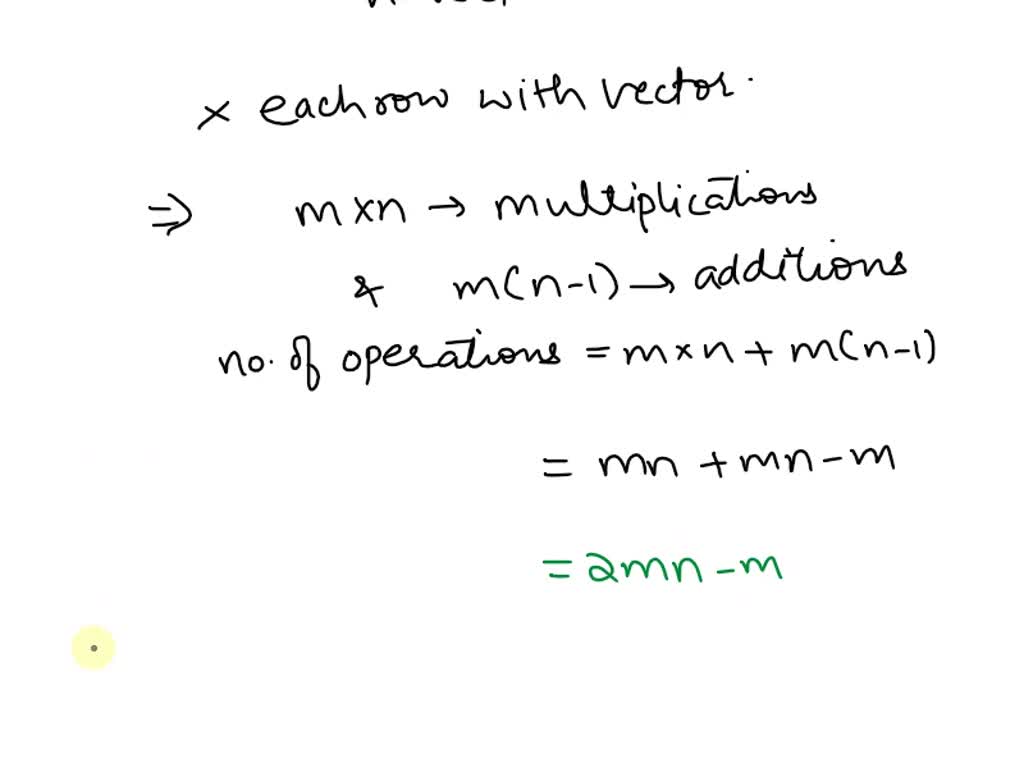 × each row with vector.
⇒ m×n → multiplications
& m(n-1) → additions
no. of operations = m×n + m(n-1)
= mn + mn - m
= 2mn - m